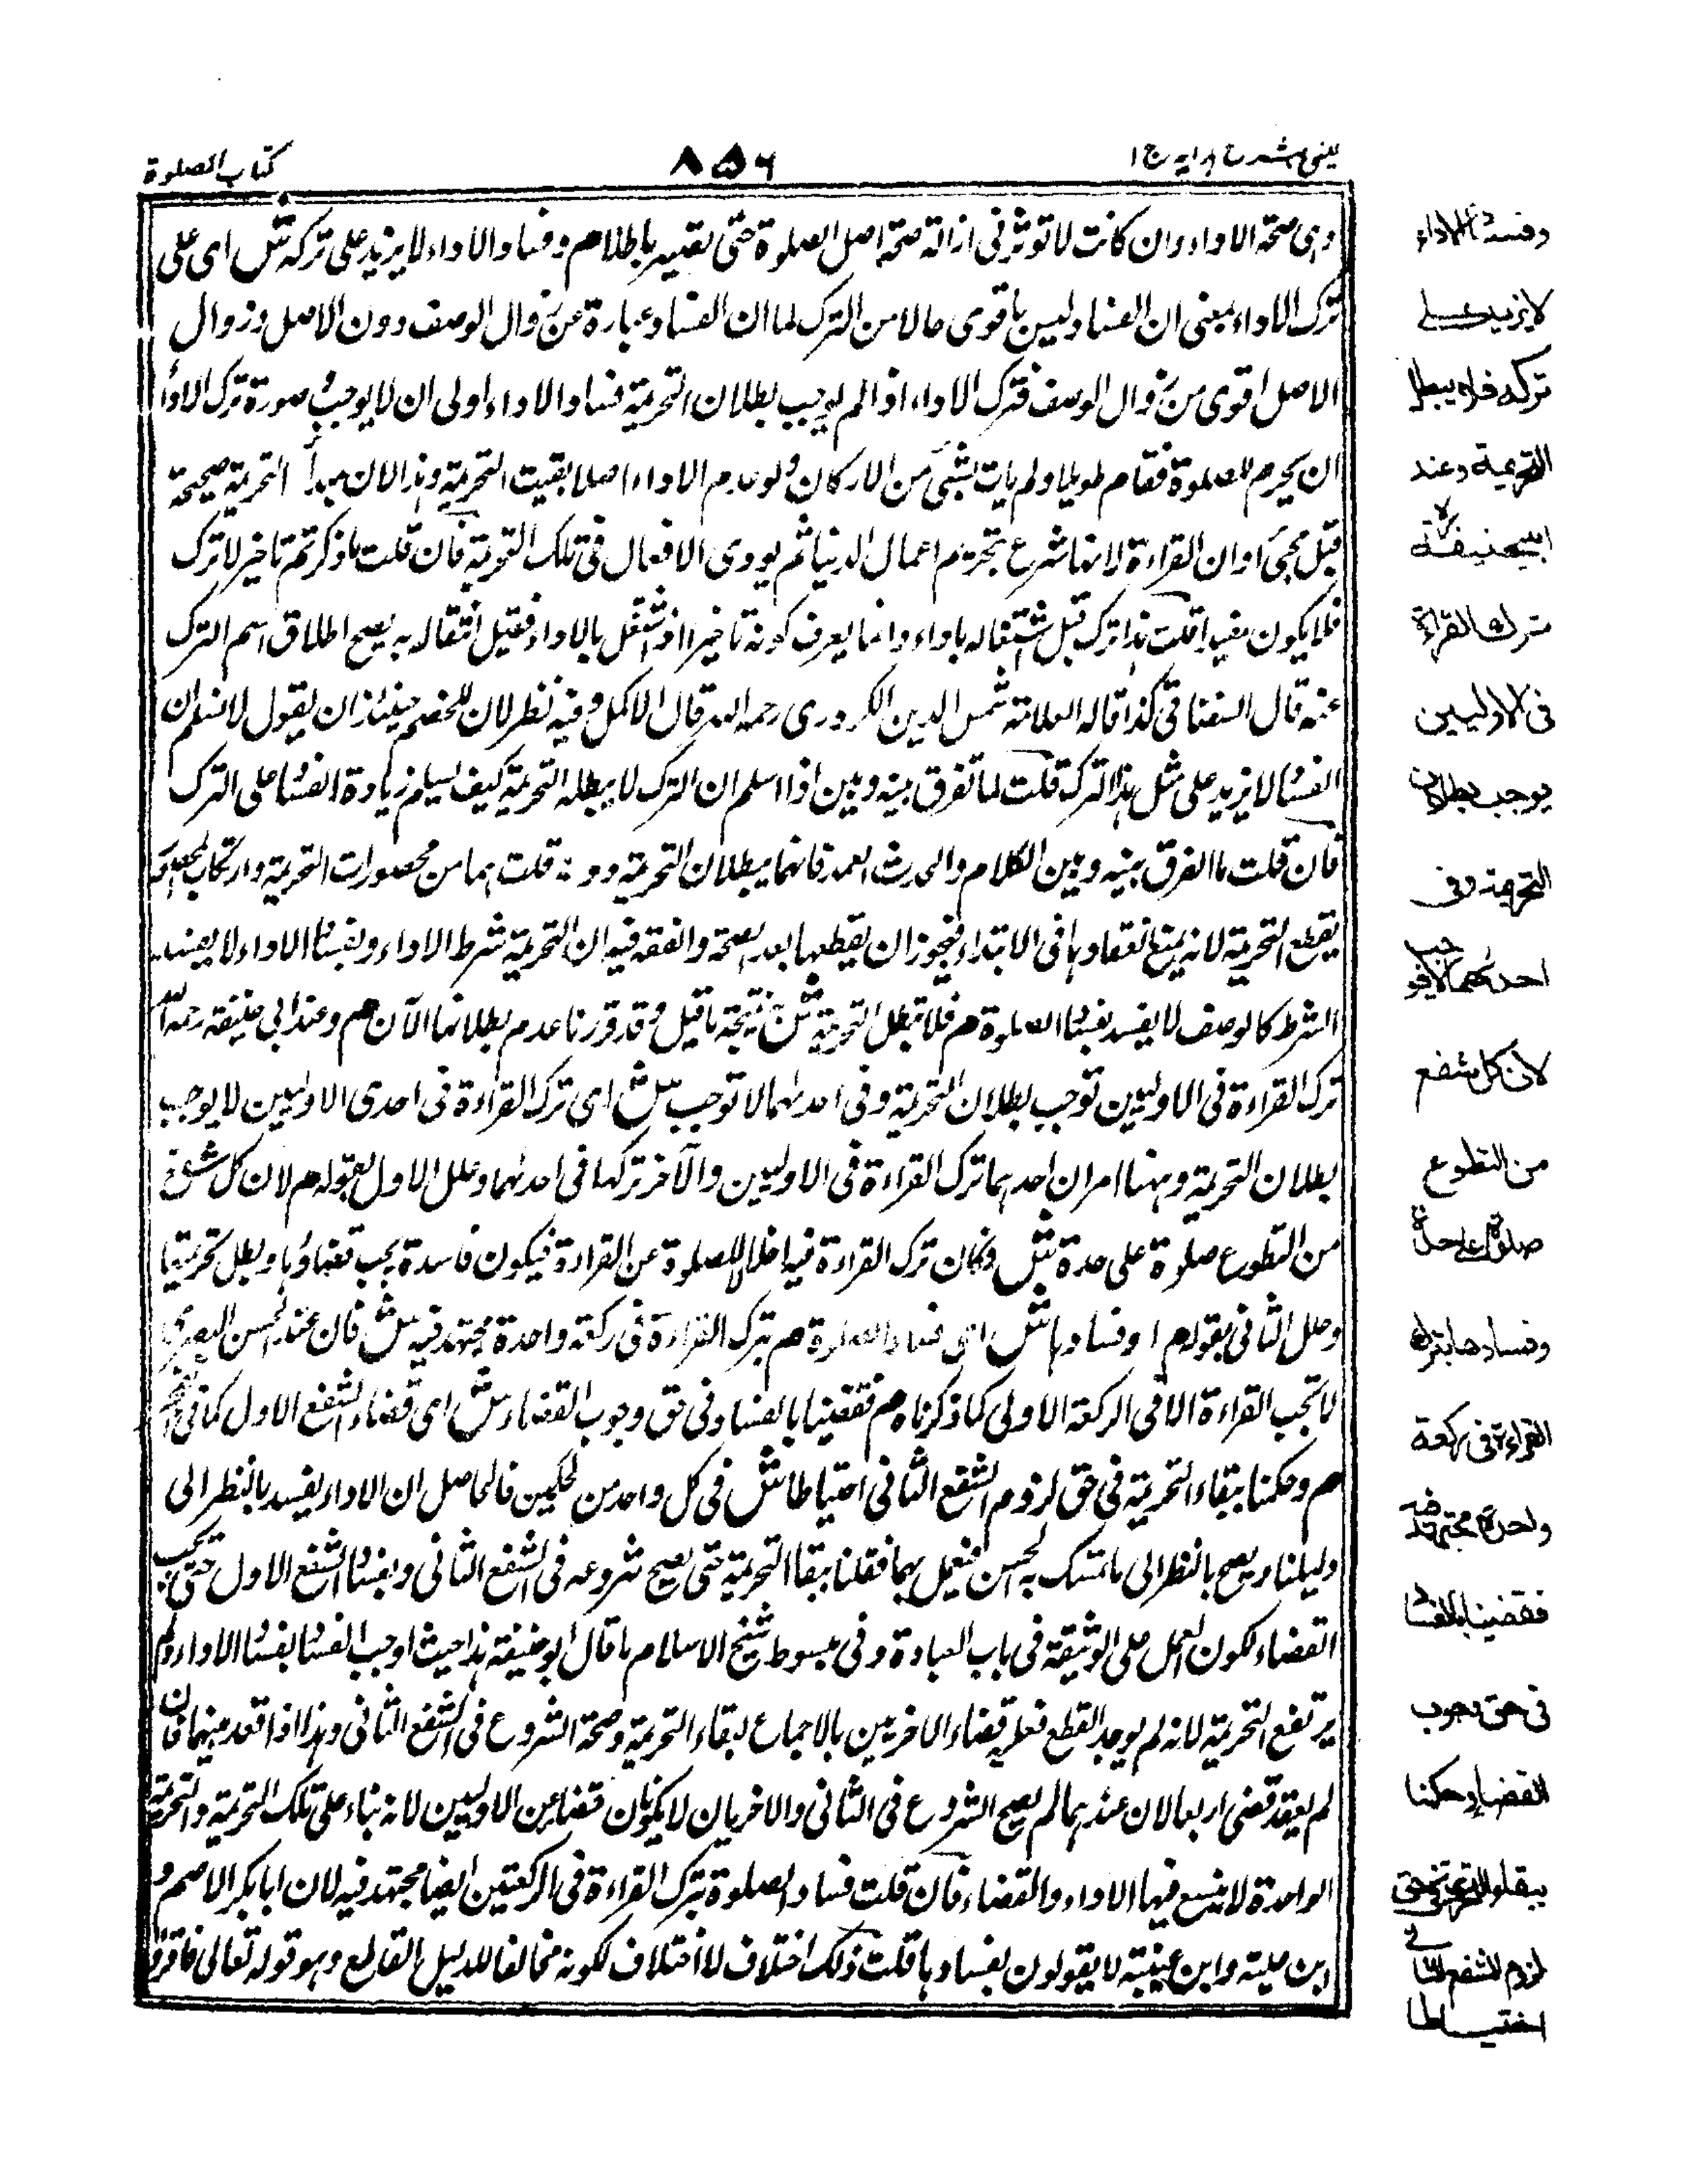 عینی شرح ہدایہ ج ا
۸۵۶
كتاب الصلوة
وہی صحة الاداء وان كانت لا توثر فی ازالة صحة اصل الصلوة حتى يصير باطلا م وفساد الاداء لا يزيد على تركه ش اى على
ترك الاداء بمعنى ان الفساد ليس باقوى حالا من الترك لما ان الفساد عبارة عن زوال الوصف دون الاصل وزوال
الاصل اقوى من زوال الوصف فترك الاداء اذا لم يوجب بطلان التحريمة ففساد الاداء اولى ان لا يوجب وصورة ترك الاداء
ان يحرم للصلوة فقام طويلا ولم يات بشئ من الاركان ولو عدم الاداء اصلا بقيت التحريمة وہذا لان مبدأ التحريمة صحيحة
قبل مجئ اوان القراءة لانها شرع بتحريم اعمال الدنيا ثم يودى الافعال فى تلك التحريمة فان قلت ما ذكرتم تاخير لا ترك
فلا يكون مفيدا قلت ہذا ترك قبل اشتغاله باداء وانما يعرف كونه تاخيرا اذ اشتغل بالاداء فقبل اشتغاله به يصح اطلاق اسم الترك
عنه قال السغناقى كذا قاله العلامة شمس الدين الكردرى رحمه الله قال الاكمل وفيه نظر لان للخصم حينئذ ان يقول لا نسلم ان
الفساد لا يزيد على مثل ہذا الترك قلت لما تفرق بينه وبين اذا اسلم ان الترك لا يبطله التحريمة كيف يسلم زيادة الفساد على الترك
فان قلت ما الفرق بينه وبين الكلام والحدث العمد فانهما يبطلان التحريمة دونه قلت ہما من محصورات التحريمة وارتكاب المحصور
يقطع التحريمة لانه يمنع انعقادہا فى الابتداء فيجوز ان يقطعها بعد الصحة والفقه فيه ان التحريمة شرط الاداء وبفساد الاداء لا يفسد
الشرط كالوصف لا يفسد بفساد الصلوة م فلا تبطل التحريمة ش نتيجة ما قيل وقد قررنا عدم بطلانها الآن م وعند ابى حنيفة رحمه الله
ترك القراءة فى الاوليين توجب بطلان التحريمة وفى احدہما لا توجب ش اى ترك القراءة فى احدى الاوليين لا يوجب
بطلان التحريمة وہہنا امران احدہما ترك القراءة فى الاوليين والآخر تركها فى احدہما وعلل الاول بقوله م لان كل شفع
من التطوع صلوة على حدة ش وكان ترك القراءة فيه اخلاء للصلوة عن القراءة فيكون فاسدة يجب قضاؤہا وبطل تحريمتها
وعلل الثانى بقوله م وفسادہا ش اى فساد الصلوة م بترك القراءة فى ركعة واحدة مجتهد فيه ش فان عند الحسن البصرى
لا تجب القراءة الا فى الركعة الاولى كما ذكرناه م فقضينا بالفساد فى حق وجوب القضاء ش اى قضاء الشفع الاول كما فى
م وحكمنا ببقاء التحريمة فى حق لزوم الشفع الثانى احتياطا ش فى كل واحد من الحكمين فالحاصل ان الاداء يفسد بالنظر الى
دليلنا ويصح بالنظر الى ما تمسك به الحسن فنعمل بهما فقلنا ببقاء التحريمة حتى يصح شروعه فى الشفع الثانى وبفساد الشفع الاول حتى يجب
القضاء لكون العمل على الوثيقة فى باب العبادة وفى مبسوط شيخ الاسلام ما قال ابو حنيفة ہذا حيث اوجب الفساد بفساد الاداء ولم
يرتفع التحريمة لانه لم يوجد القطع فعليه قضاء الاخريين بالاجماع لبقاء التحريمة وصحة الشروع فى الشفع الثانى وہذا اذا قعد بينهما فان
لم يقعد قضى اربعا لان عندہما لم يصح الشروع فى الثانى والاخريان لا يكونان قضاء عن الاوليين لانه بناء على تلك التحريمة والتحريمة
الواحدة لا يتسع فيها الاداء والقضاء فان قلت فساد الصلوة بترك القراءة فى الركعتين ايضا مجتهد فيه لان ابابكر الاصم و
ابن علية وابن عيينة لا يقولون بفسادہا قلت ذلك اختلاف لا اختلاف لكونه مخالفا للدليل القاطع وہو قوله تعالى فاقرؤا
وفساد الاداء
لا يزيد على
تركه فلا يبطل
التحريمة وعند
ابيحنيفة
ترك القراءة
فى الاوليين
يوجب بطلان
التحريمة وفى
احدهما لا يوجب
لان كل شفع
من التطوع
صلوة على حدة
وفسادها بترك
القراءة فى ركعة
واحدة مجتهد فيه
فقضينا بالفساد
فى حق وجوب
القضاء وحكمنا
ببقاء التحريمة فى حق
لزوم الشفع الثانى
احتياطا